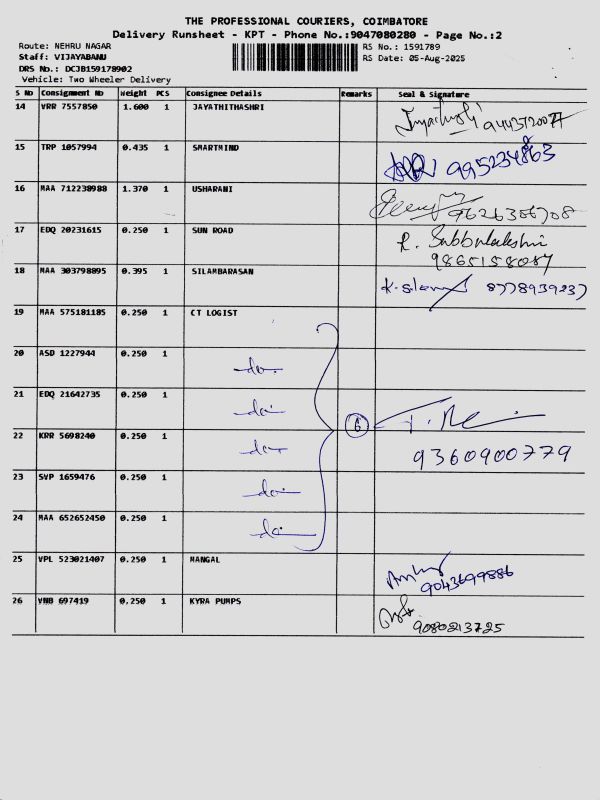 THE PROFESSIONAL COURIERS, COIMBATORE
Delivery Runsheet - KPT - Phone No.:9047080280 - Page No.:2
Route: NEHRU NAGAR
RS No.: 1591789
Staff: VIJAYABANU
RS Date: 05-Aug-2025
DRS No.: DCJB159178902
Vehicle: Two Wheeler Delivery
S No Consignment No Weight PCS Consignee Details Remarks Seal & Signature
14 VRR 7557850 1.600 1 JAYATHITHASHRI
15 TRP 1057994 0.435 1 SMARTMIND
16 MAA 712238988 1.370 1 USHARANI 9626386708
17 EDQ 20231615 0.250 1 SUN ROAD R. Subbulakshmi
9865158087
18 MAA 303798895 0.395 1 SILAMBARASAN 8778939237
19 MAA 575181185 0.250 1 CT LOGIST
20 ASD 1227944 0.250 1 do
21 EDQ 21642735 0.250 1 do
22 KRR 5698240 0.250 1 do 6
9360900779
23 SVP 1659476 0.250 1 do
24 MAA 652652450 0.250 1 do
25 VPL 523021407 0.250 1 MANGAL
9043699886
26 VNB 697419 0.250 1 KYRA PUMPS
9080213725